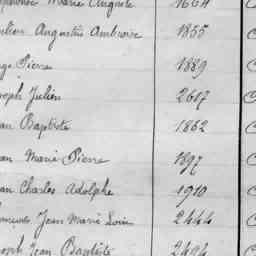 Marie Auguste 1664
Augustin Ambroise 1855
Pierre 1889
Joseph Julien 2617
Jean Baptiste 1862
Jean Marie Pierre 1897
Jean Charles Adolphe 1910
François Jean Marie Louis 2444
Joseph Jean Baptiste 2494